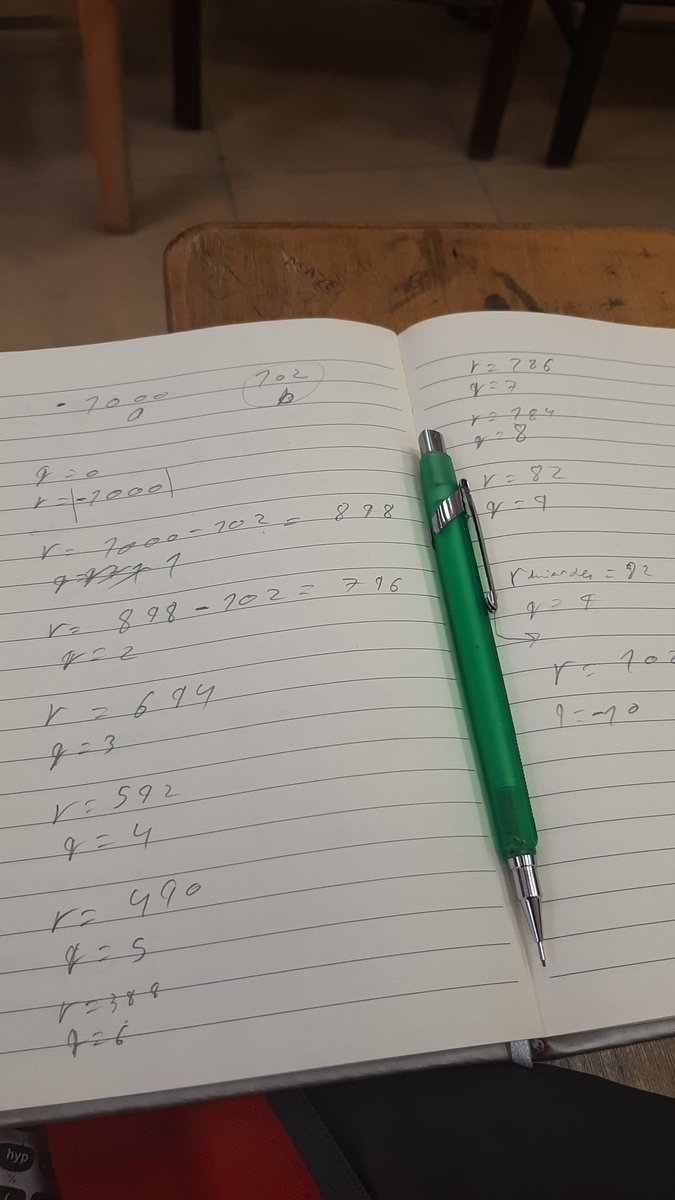 - 1000
a
102
b
q = 0
r = |-1000|
r = 1000 - 102 = 898
1
r = 898 - 102 = 796
q = 2
r = 694
q = 3
r = 592
q = 4
r = 490
q = 5
r = 388
q = 6
r = 286
q = 7
r = 184
q = 8
r = 82
q = 9
= 82
q = 9
r = 102
q = -10
hyp
%